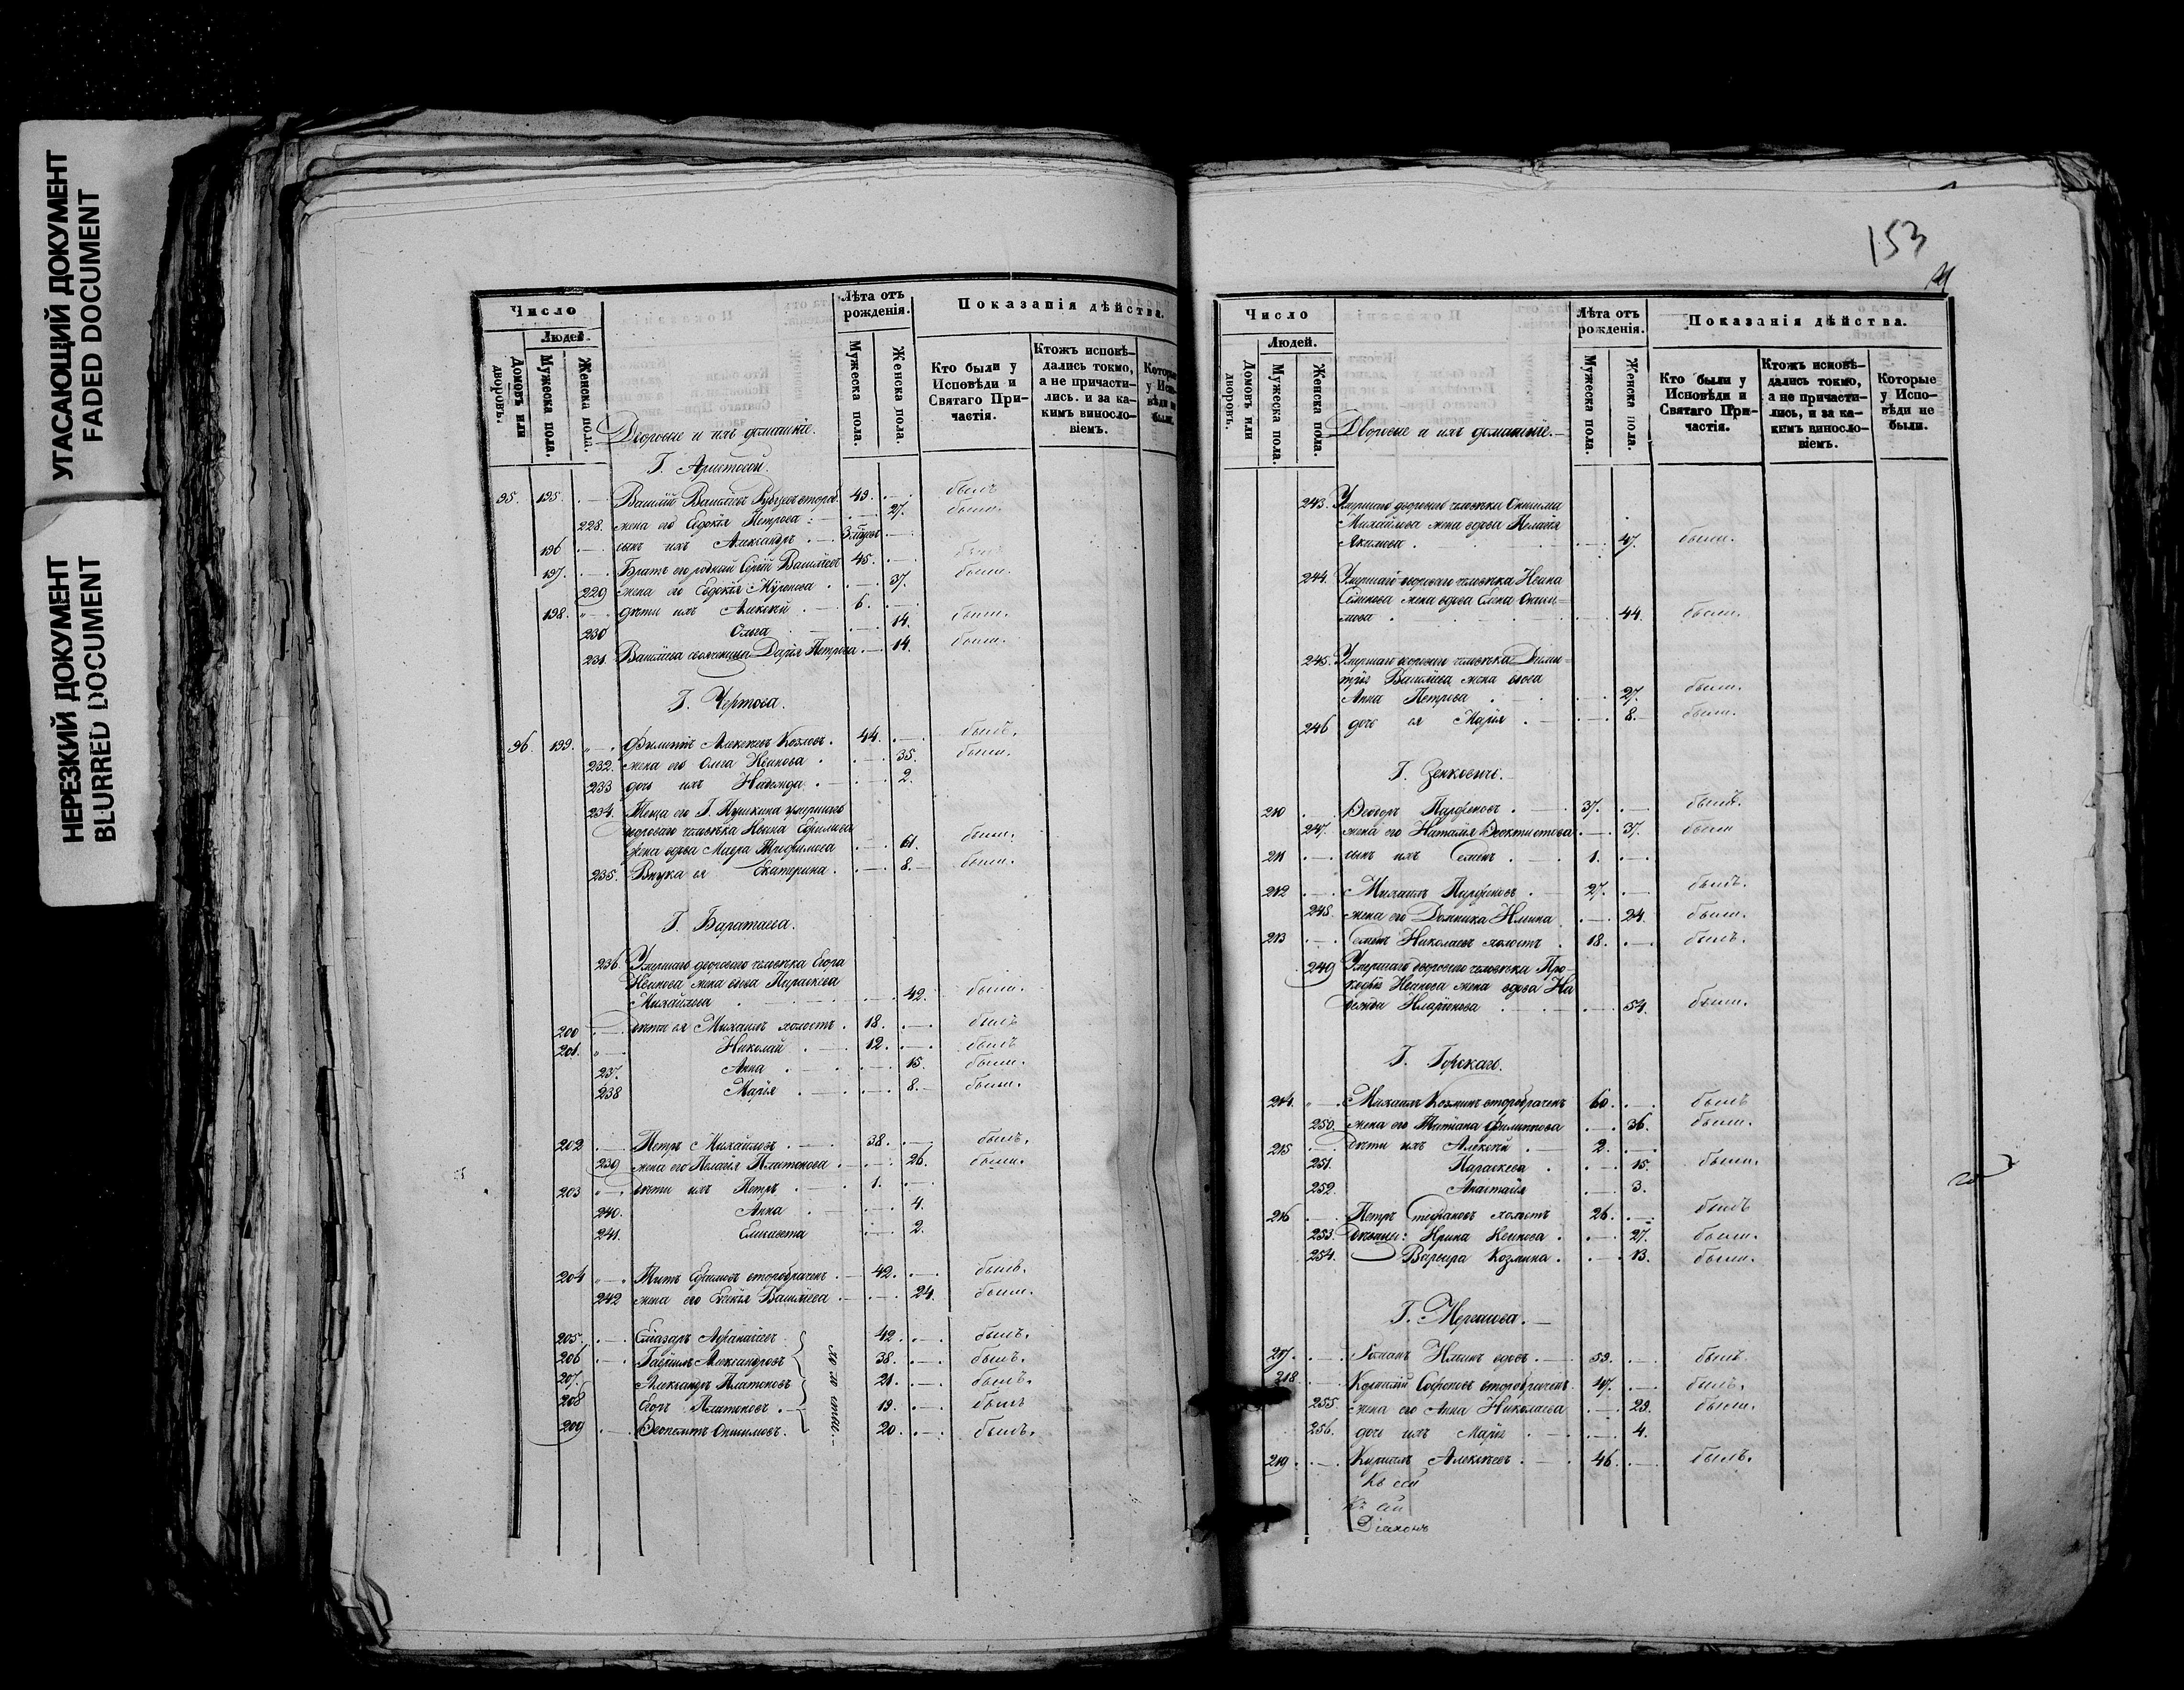 УГАСАЮЩИЙ ДОКУМЕНТ
FADED DOCUMENT
НЕРЕЗКИЙ ДОКУМЕНТ
BLURRED DOCUMENT
Число
Людей.
Домовъ или дворовъ.
Мужеска пола.
Женска пола.
Лѣта отъ рожденія.
Мужеска пола.
Женска пола.
Показанія дѣйства.
Кто были у Исповѣди и Святаго При-
частія.
Ктожъ исповѣ-
дались токмо,
а не причасти-
лись. и за ка-
кимъ виносло-
віемъ.
Которые
у Испо-
вѣди не
были.
Дворовые и ихъ домашніе.
Г.
95. 195. Василій Васильевъ второб. 49. былъ
228. жена его Евдокія Петрова 27. была.
196 сынъ ихъ Александръ
197. Братъ его родный Сергій Васильевъ 45. былъ
229 жена его Евдокія 37. была.
198. дѣти ихъ Алексѣй 6.
230 Ольга 14. была.
231. Васильева свояченица Дарія Петрова 14. была.
Г. Чертова.
96. 199. Филиппъ Алексѣевъ Козловъ. 44. былъ.
232. жена его Олга Иванова 35. была.
233 дочь ихъ Надежда 2.
234. Теща его Г. Пушкина умершаго
двороваго человѣка Ивана Ефимова
жена вдова Мавра 61. была.
235. Внука ея Екатерина. 8. была.
Г. Баратаева.
236. Умершаго двороваго человѣка Егора
Иванова жена вдова Параскева
Михайлова 42. была.
200 дѣти ея Михаилъ холостъ. 18. былъ
201. Николай 12. былъ
237. Анна 15. была.
238 Марія 8. была.
202 Петръ Михайловъ 38. былъ.
239 жена его Пелагія Платонова 26. была.
203 дѣти ихъ Петръ 1.
240. Анна 4.
241. Елисавета 2.
204 Титъ Ефимовъ второбраченъ. 42. былъ.
242 жена его Васильева 24. была.
205. Елеазаръ Афанасьевъ 42. былъ.
206 Гавріилъ Александровъ 38. былъ.
207. Александръ Платоновъ 21. былъ.
208 Егоръ Платоновъ 19. былъ
209 Феопемптъ Онисимовъ. 20. былъ.
холосты.
153
Число
Людей.
Домовъ или дворовъ.
Мужеска пола.
Женска пола.
Лѣта отъ рожденія.
Мужеска пола.
Женска пола.
Показанія дѣйства.
Кто были у
Исповѣди и
Святаго При-
частія.
Ктожъ исповѣ-
дались токмо,
а не причасти-
лись, и за ка-
кимъ виносло-
віемъ.
Которые
у Испо-
вѣди не
были.
Дворовые и ихъ домашніе.
243. Умершаго двороваго человѣка Онисима
Михайлова жена вдова Пелагія
Якимова 47. была.
244. Умершаго двороваго человѣка Ивана
Семенова жена вдова ЕленаОниси-
мова 44. была.
245. Умершаго двороваго человѣка Дими-
трія Васильева жена вдова
Анна Петрова 27. была.
246 дочь ея Марія 8. была.
Г. Зенковичъ.
210 Ѳеодоръ Парфеновъ 37. былъ.
247. жена его Наталія Ѳеоктистова 37. была
211 сынъ ихъ Семенъ 1.
212 Михаилъ Парфеновъ 27. былъ.
248. жена его Домника Ильина 24. была.
213 Николаевъ холостъ 18. былъ.
249 Умершаго двороваго человѣка Про-
кофія Иванова жена вдова На
дежда Иларіонова 54. была.
Г. Горскаго.
214. Михаилъ Козминъ второбраченъ 60. былъ
250. жена его Татіана Филиппова 36. была.
215 дѣти ихъ Алексѣй 2.
251. Параскева 15. была.
252. Анастасія 3.
216 Петръ Стефановъ холостъ 26. былъ
253. Дѣвицы: Ирина Иванова 27. была.
254. Варвара Козмина 13. была.
Г.
217. Романъ Ильинъ вдовъ 59. былъ.
218 Корнилій Софоновъ второбраченъ. 47. былъ.
255. жена его Анна Николаева 29. была.
256. дочь ихъ Марія 4.
219 Кириллъ Алексѣевъ 46. былъ.
Къ сей
Къ сей
Діаконъ